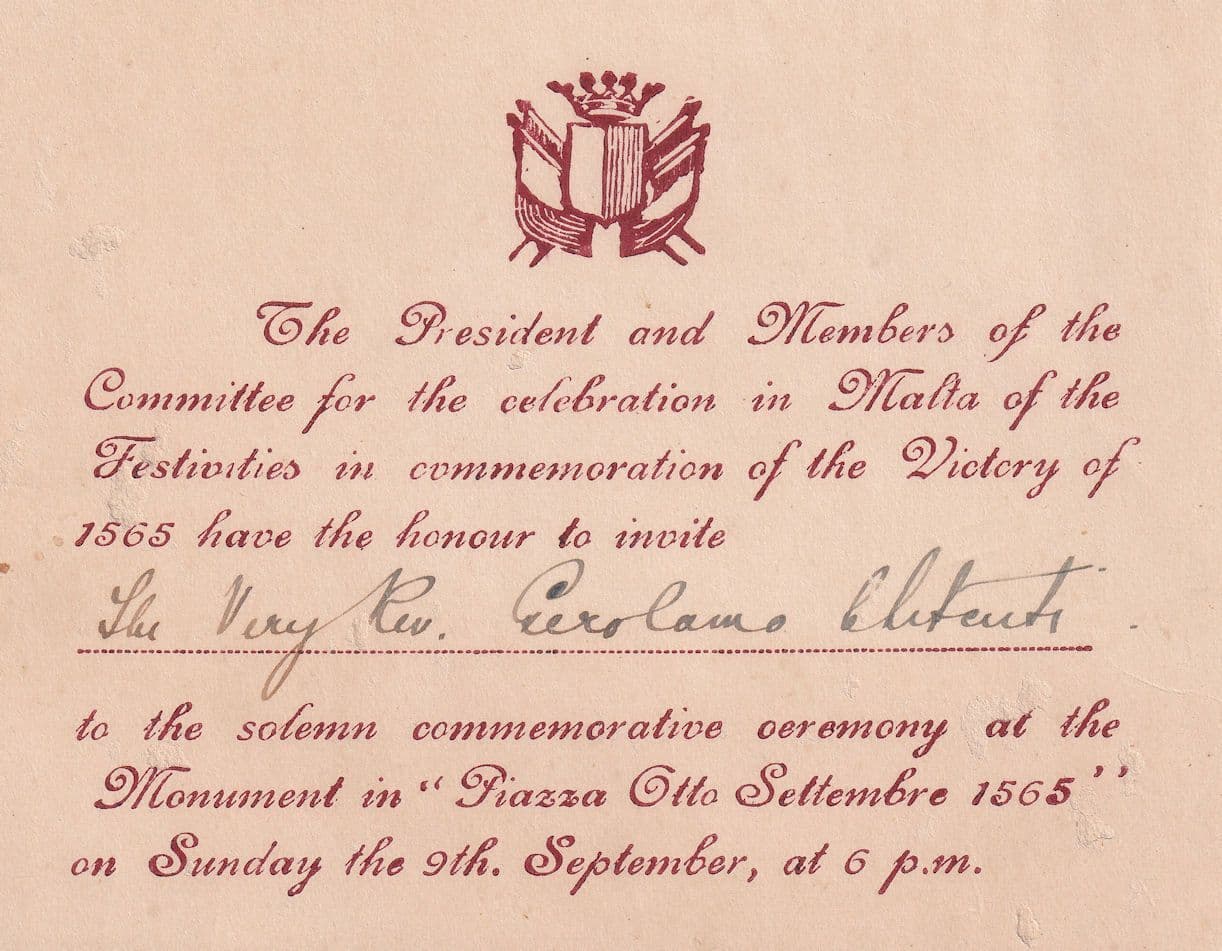 The President and Members of the
Committee for the celebration in Malta of the
Festivities in commemoration of the Victory of
1565 have the honour to invite
The Very Rev. Gerolamo Chetcuti.
to the solemn commemorative ceremony at the
Monument in “Piazza Otto Settembre 1565’’
on Sunday the 9th. September, at 6 p.m.